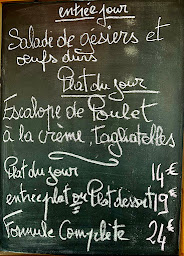 entrée jour
Salade de gésiers et
œufs durs
Plat du jour
Escalope de Poulet
à la crème, tagliatelles
Plat du jour 14€
entrée plat ou Plat dessert 19€
Formule Complète 24€